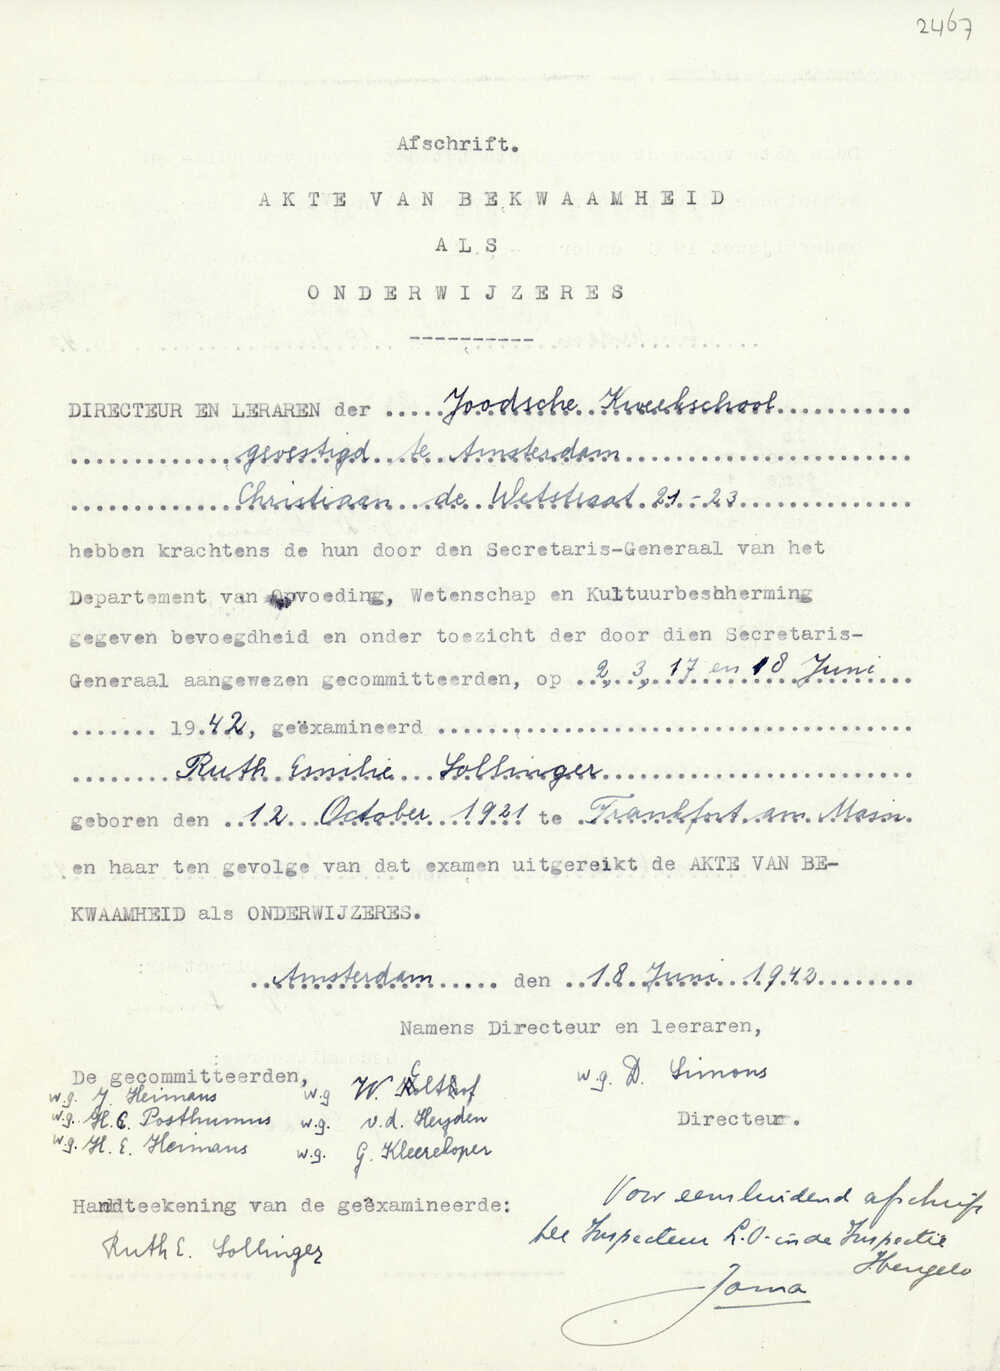 2467
Afschrift.
AKTE VAN BEKWAAMHEID
ALS
ONDERWIJZERES
----------
DIRECTEUR EN LERAREN der ..... Joodsche Kweekschool ...........
.............. gevestigd te Amsterdam ........................
.............. Christiaan de Wetstraat 21-23 ...............
hebben krachtens de hun door den Secretaris-Generaal van het
Departement van Opvoeding, Wetenschap en Kultuurbescherming
gegeven bevoegdheid en onder toezicht der door dien Secretaris-
Generaal aangewezen gecommitteerden, op .. 2, 3, 17 en 18 Juni ...
....... 1942, geëxamineerd ..................................
........ Ruth Emilie Sollinger ........................
geboren den .. 12 October 1921 te .. Frankfort am Main.
en haar ten gevolge van dat examen uitgereikt de AKTE VAN BE-
KWAAMHEID als ONDERWIJZERES.
.. Amsterdam ..... den .. 18 Juni 1942 ........
Namens Directeur en leeraren,
De gecommitteerden,
w.g. J. Heimans w.g W. Kolthof w.g. D. Simons
w.g. H.C. Posthumus w.g. v.d. Heyden Directeur.
w.g. H. E. Heimans w.g. G. Kleerekoper
Handteekening van de geëxamineerde:
Ruth E. Sollinger
Voor eensluidend afschrift
de Inspecteur L.O. in de Inspectie
Hengelo